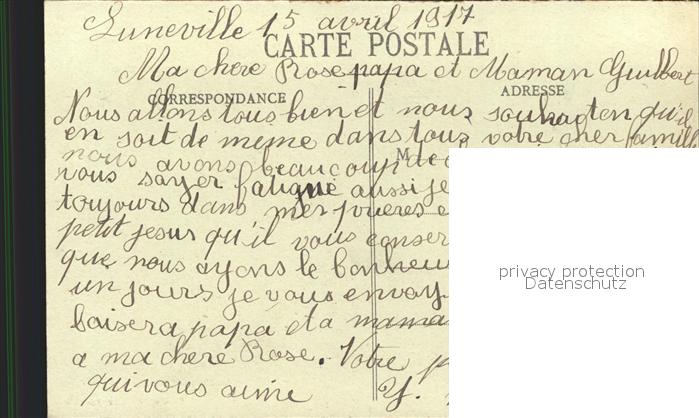 Luneville 15 avril 1917
CARTE POSTALE
Ma chere Rose papa et Maman Guilbert
CORRESPONDANCE
ADRESSE
Nous allons tous bien et nous souhaiton qu'il
en soit de meme dans tous votre cher famille
nous avons beaucoup de
M
vous sayer fatigué aussi je
toujours dans mes prieres e
petit jesus qu'il vous conser
que nous ayons le bonheu
un jours je vous envoy
baisera papa et a mama
a ma chere Rose. Votre p
qui vous aime Y.
privacy protection
Datenschutz